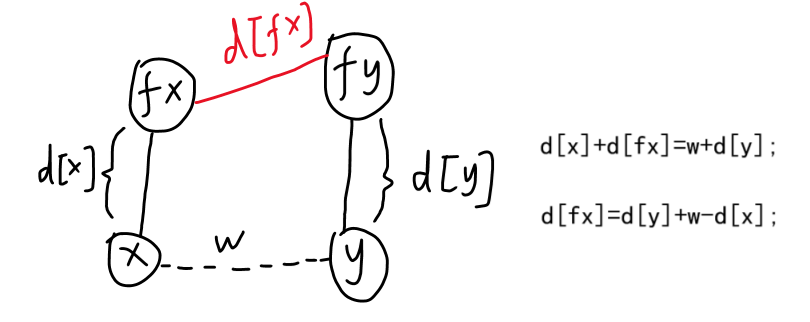 d[fx]
fx
fy
d[x]
d[y]
x
w
y
d[x]+d[fx]=w+d[y];
d[fx]=d[y]+w-d[x];